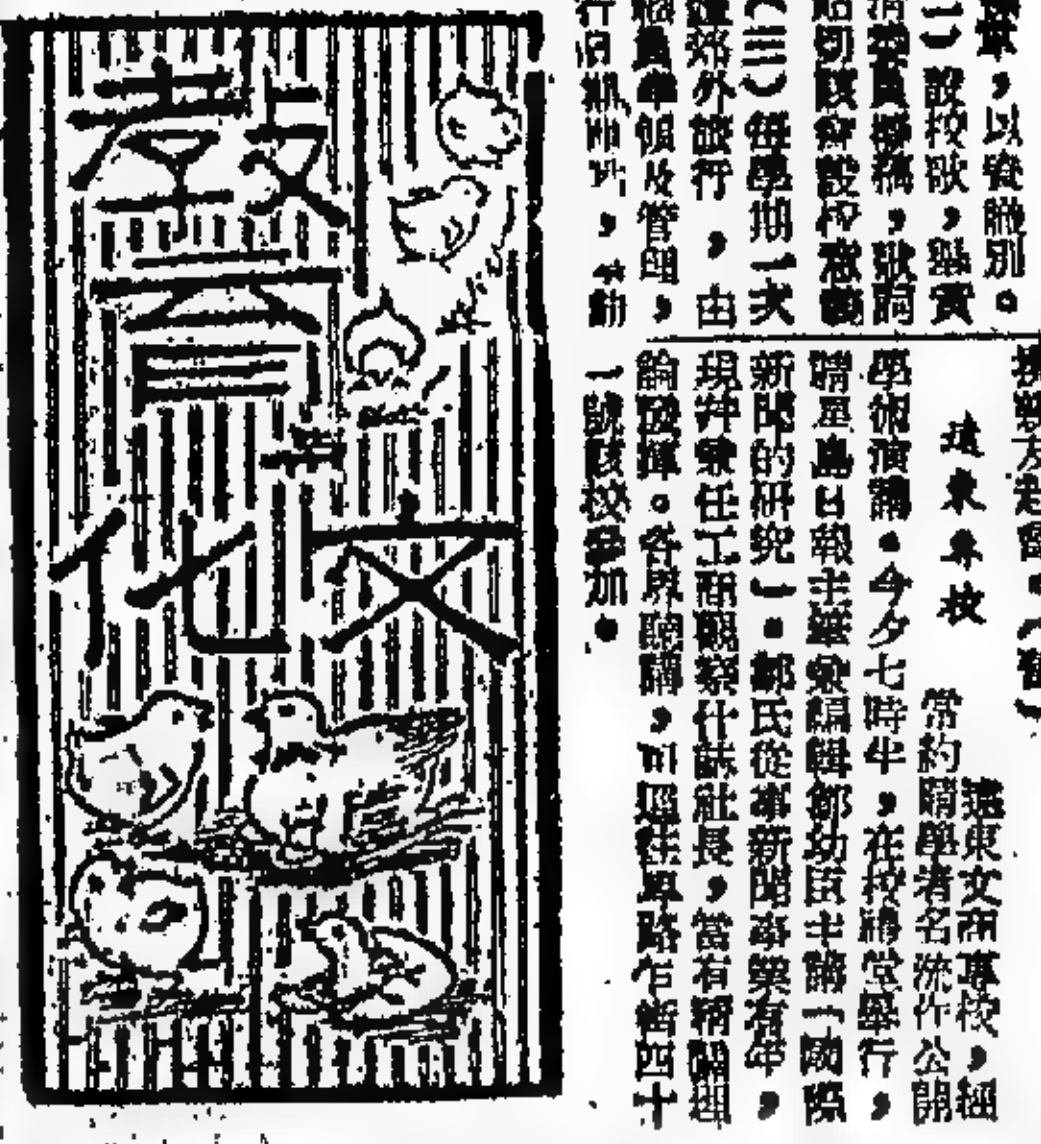 章，以資識別。
二）設校歌，
員撰稿，歌詞
切該會設校意義
（三）每學期一次
郊外旅行，由
員率領及管理，
行日期
遠東專校
遠東文商專校，經
常約請學者名流作公開
學術演講。今夕七時半，在校講堂舉行，
聘星島日報主筆兼編輯鄭幼臣主講「國際
新聞的研究」。鄭氏從事新聞事業有年，
現并兼任工商觀察什誌社長，當有精闢理
論發揮。各界聽講，可逕往 街四十
一號該校參加。
教育
與
文化